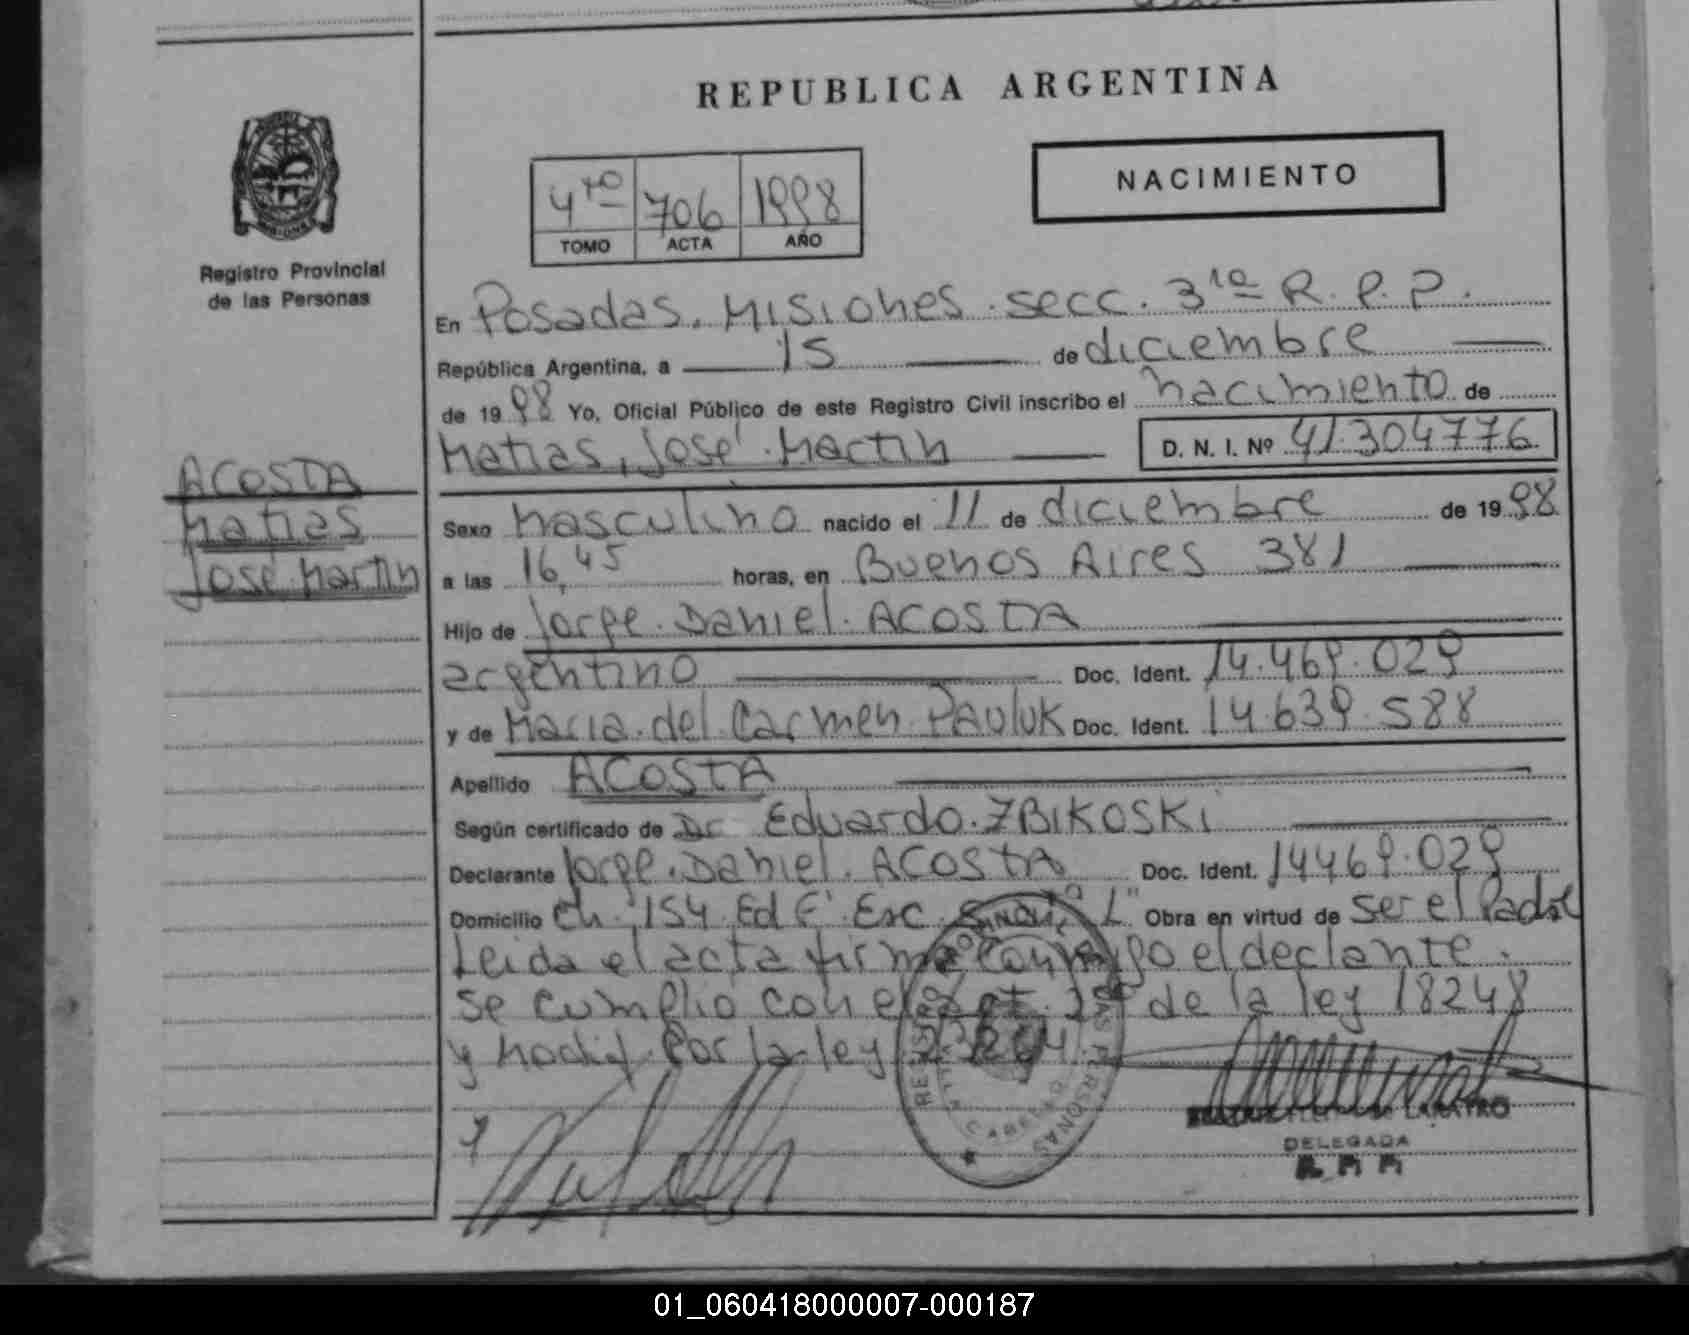 REPUBLICA ARGENTINA
NACIMIENTO
4to 706 1998
TOMO ACTA AÑO
Registro Provincial
de las Personas
ACOSTA
Matias
José Martin
En Posadas, Misiones. secc. 3ra R.P.P.
República Argentina, a 15 de diciembre
de 1998 Yo, Oficial Público de este Registro Civil inscribo el nacimiento de
Matias, José Martin D. N. I. Nº 41.304776
Sexo masculino nacido el 11 de diciembre de 1998
a las 16,45 horas, en Buenos Aires 381
Hijo de Jorge Daniel ACOSTA
argentino Doc. Ident. 14.469.029
y de Maria del Carmen PAULUK Doc. Ident. 14.639.588
Apellido ACOSTA
Según certificado de Dr Eduardo ZBIKOSKI
Declarante Jorge Daniel ACOSTA Doc. Ident. 14469.029
Domicilio Ch 154 Ed F Esc "L" Obra en virtud de ser el Padre
Leida el acta firma conmigo el declante.
se cumplio con el de la ley 18248
y modif. por la ley 23264
DELEGADA
01_060418000007-000187